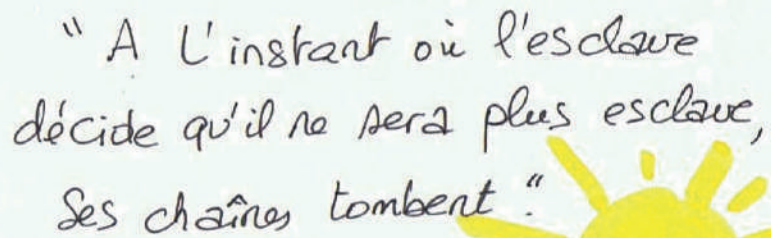 " A L'instant où l'esclave
décide qu'il ne sera plus esclave,
ses chaînes tombent "